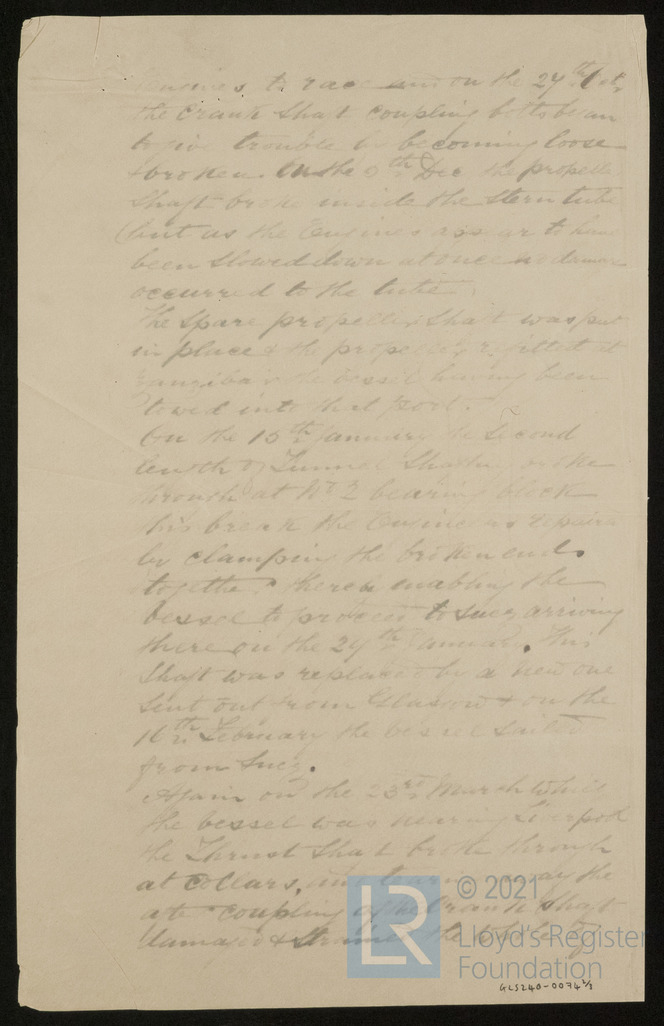 Engines to race and on the 27th Oct.
the Crank Shaft coupling bolts began
to give trouble by becoming loose
& broken. On the 9th Dec. the propeller
Shaft broke inside the Stern tube
but as the Engines appear to have
been slowed down at once no damage
occurred to the tube.
The Spare propeller Shaft was put
in place & the propeller refitted at
Zanzibar the vessel having been
towed into that port.
On the 15th January the second
length of Tunnel Shafting broke
through at No 2 bearing block
this break the Engineers repaired
by clamping the broken ends
together thereby enabling the
vessel to proceed to Suez arriving
there on the 29th January. This
Shaft was replaced by a new one
sent out from Glasgow & on the
16th February the vessel sailed
from Suez.
Again on the 23rd March while
the vessel was nearing Liverpool
the Thrust Shaft broke through
at collars, and away the
aft coupling of the Crank Shaft
damaged & strained the
© 2021
Lloyd's Register
Foundation
GLS240-0074 2/3